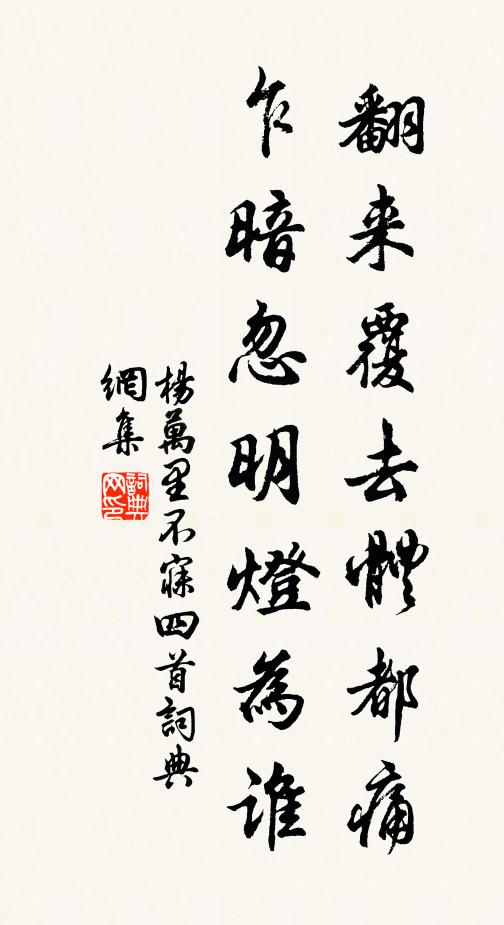 翻来覆去體都痛
乍暗忽明燈為誰
楊萬里不寐四首詞典
網集
詞典
网印